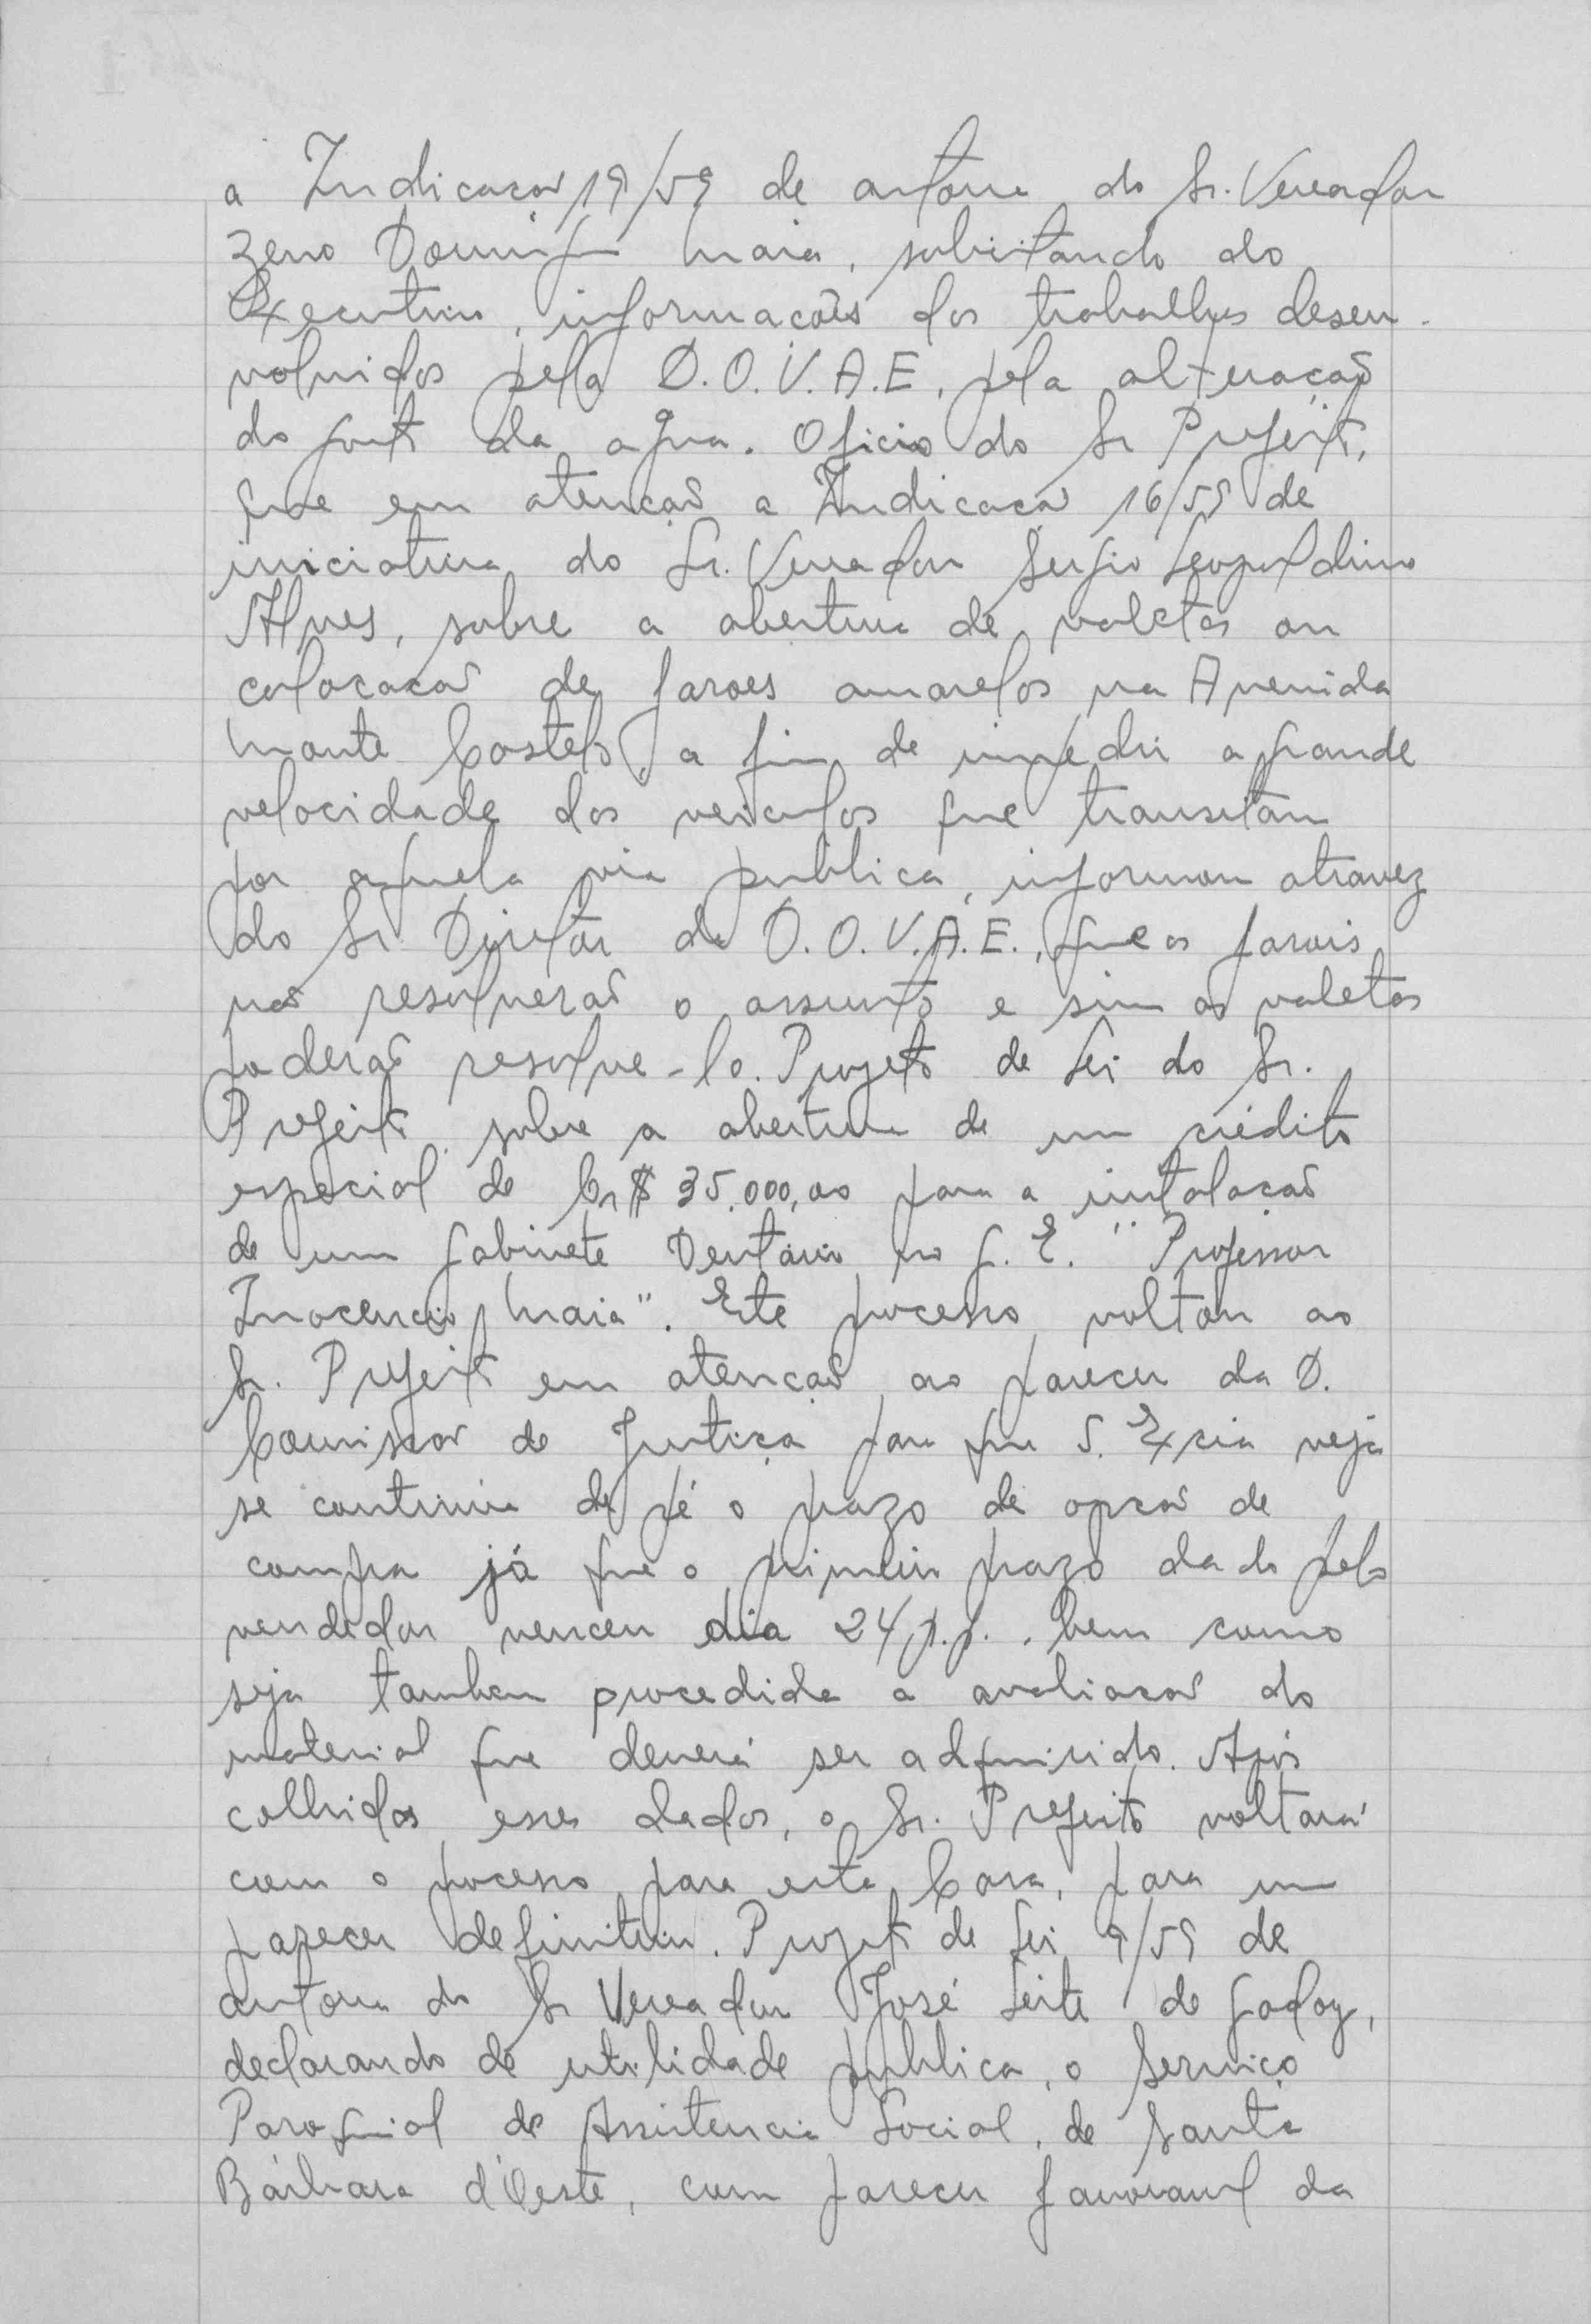 a Indicacão 19/59 de autoria do Sr. Vereador
Zeno Domingos Maia, solicitando do
Executivo, informacões dos trabalhos desen-
volvidos pela D.O.V.A.E, pela alteracão
do gosto da agua. Oficio do Sr Prefeito,
que em atencão a Indicacão 16/59 de
iniciativa do Sr. Vereador Sergio Leopoldino
Alves, sobre a abertura de valetas ou
colocacão de faroes amarelos na Avenida
Monte Castelo, a fim de impedir a grande
velocidade dos veiculos que transitam
por aquela via publica, informou atravez
do Sr. Diretor da D.O.V.A.E., que os farois
não resolverão o assunto e sim as valetas
poderão resolve-lo. Projeto de Lei do Sr.
Prefeito, sobre a abertura de um crédito
especial de Cr$ 35.000,00 para a instalacão
de um Gabinete Dentário no G. E. "Professor
Inocencio Maia". Este processo voltou ao
Sr. Prefeito em atencão ao parecer da D.
Comissão de Justiça para que S. Excia veja
se continua de pé o prazo de opcão de
compra já que o primeiro prazo dado pelo
vendedor venceu dia 24 p.p., bem como
seja tambem procedida a avaliacão do
material que deverá ser adquirido. Após
colhidos esses dados, o Sr. Prefeito voltará
com o processo para esta Casa, para um
parecer definitivo. Projeto de Lei 9/59 de
autoria do Sr Vereador José Leite de Godoy,
declarando de utilidade publica, o Serviço
Paroquial de Assistencia Social, de Santa
Bárbara d'Oeste, com parecer favoravel da